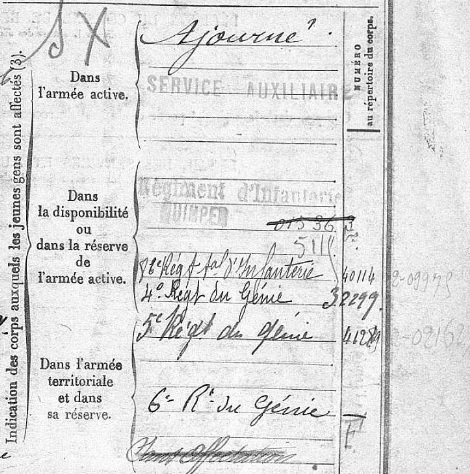 Indication des corps auxquels les jeunes gens sont affectés (3).
NUMÉRO
au répertoire du corps.
X
Ajourné
Dans
l'armée active.
SERVICE AUXILIAIRE
Dans
la disponibilité
ou
dans la réserve
de
l'armée active.
Régiment d'Infanterie
QUIMPER
01536
5111
86e Régt tal d'Infanterie 40114
4e Régt du Génie 32299
5e Régt du génie
Dans l'armée
territoriale
et dans
sa réserve.
6e Rt du Génie
F
Sans affectation